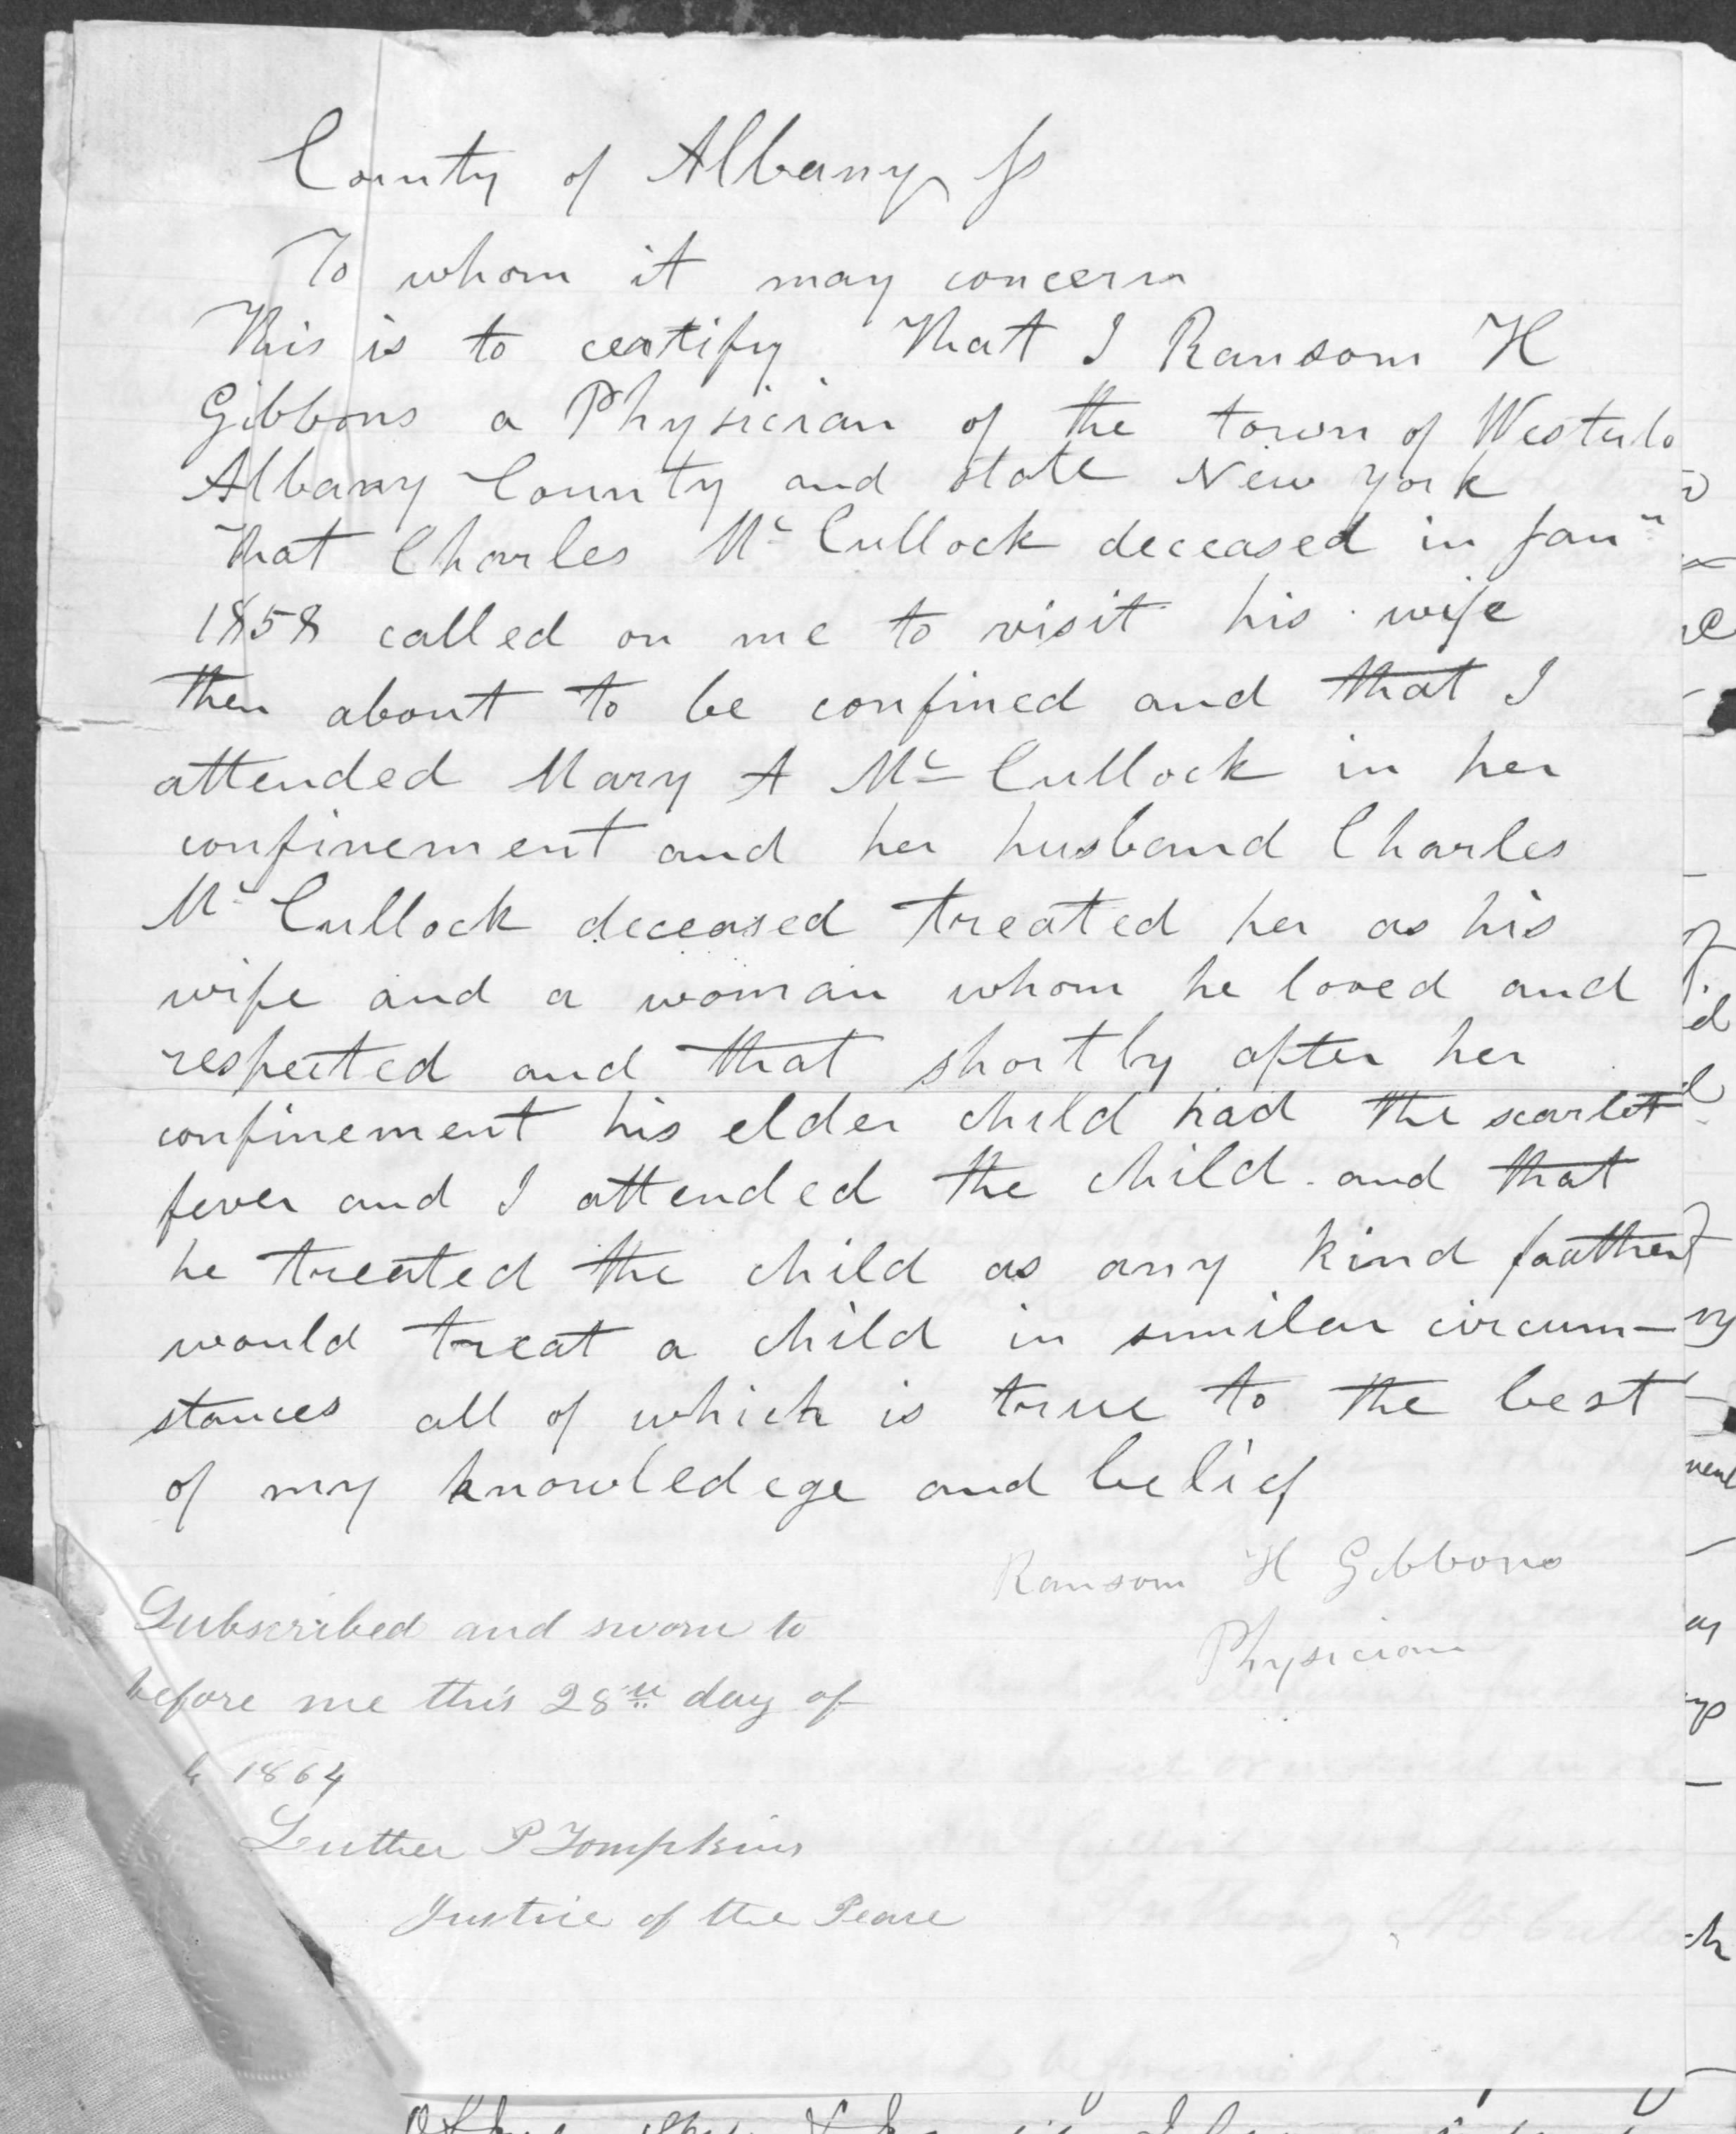 County of Albany ss
To whom it may concern
This is to certify That I Ransom H
Gibbons a Physician of the town of Westerlo
Albany County and state New York
That Charles Mc Cullock deceased in Jany
1858 called on me to visit his wife
then about to be confined and that I
attended Mary A Mc Cullock in her
confinement and her husband Charles
Mc Cullock deceased treated her as his
wife and a woman whom he loved and
respected and that shortly after her
confinement his elder child had the scarlet
fever and I attended the child and that
he treated the child as any kind faather
would treat a child in similar circum-
stances all of which is true to the best
of my knowledege and belief
Ransom H Gibbons
Physician
Subscribed and sworn to
before me this 28th day of
1864
Luther P Tompkins
Justice of the Peace